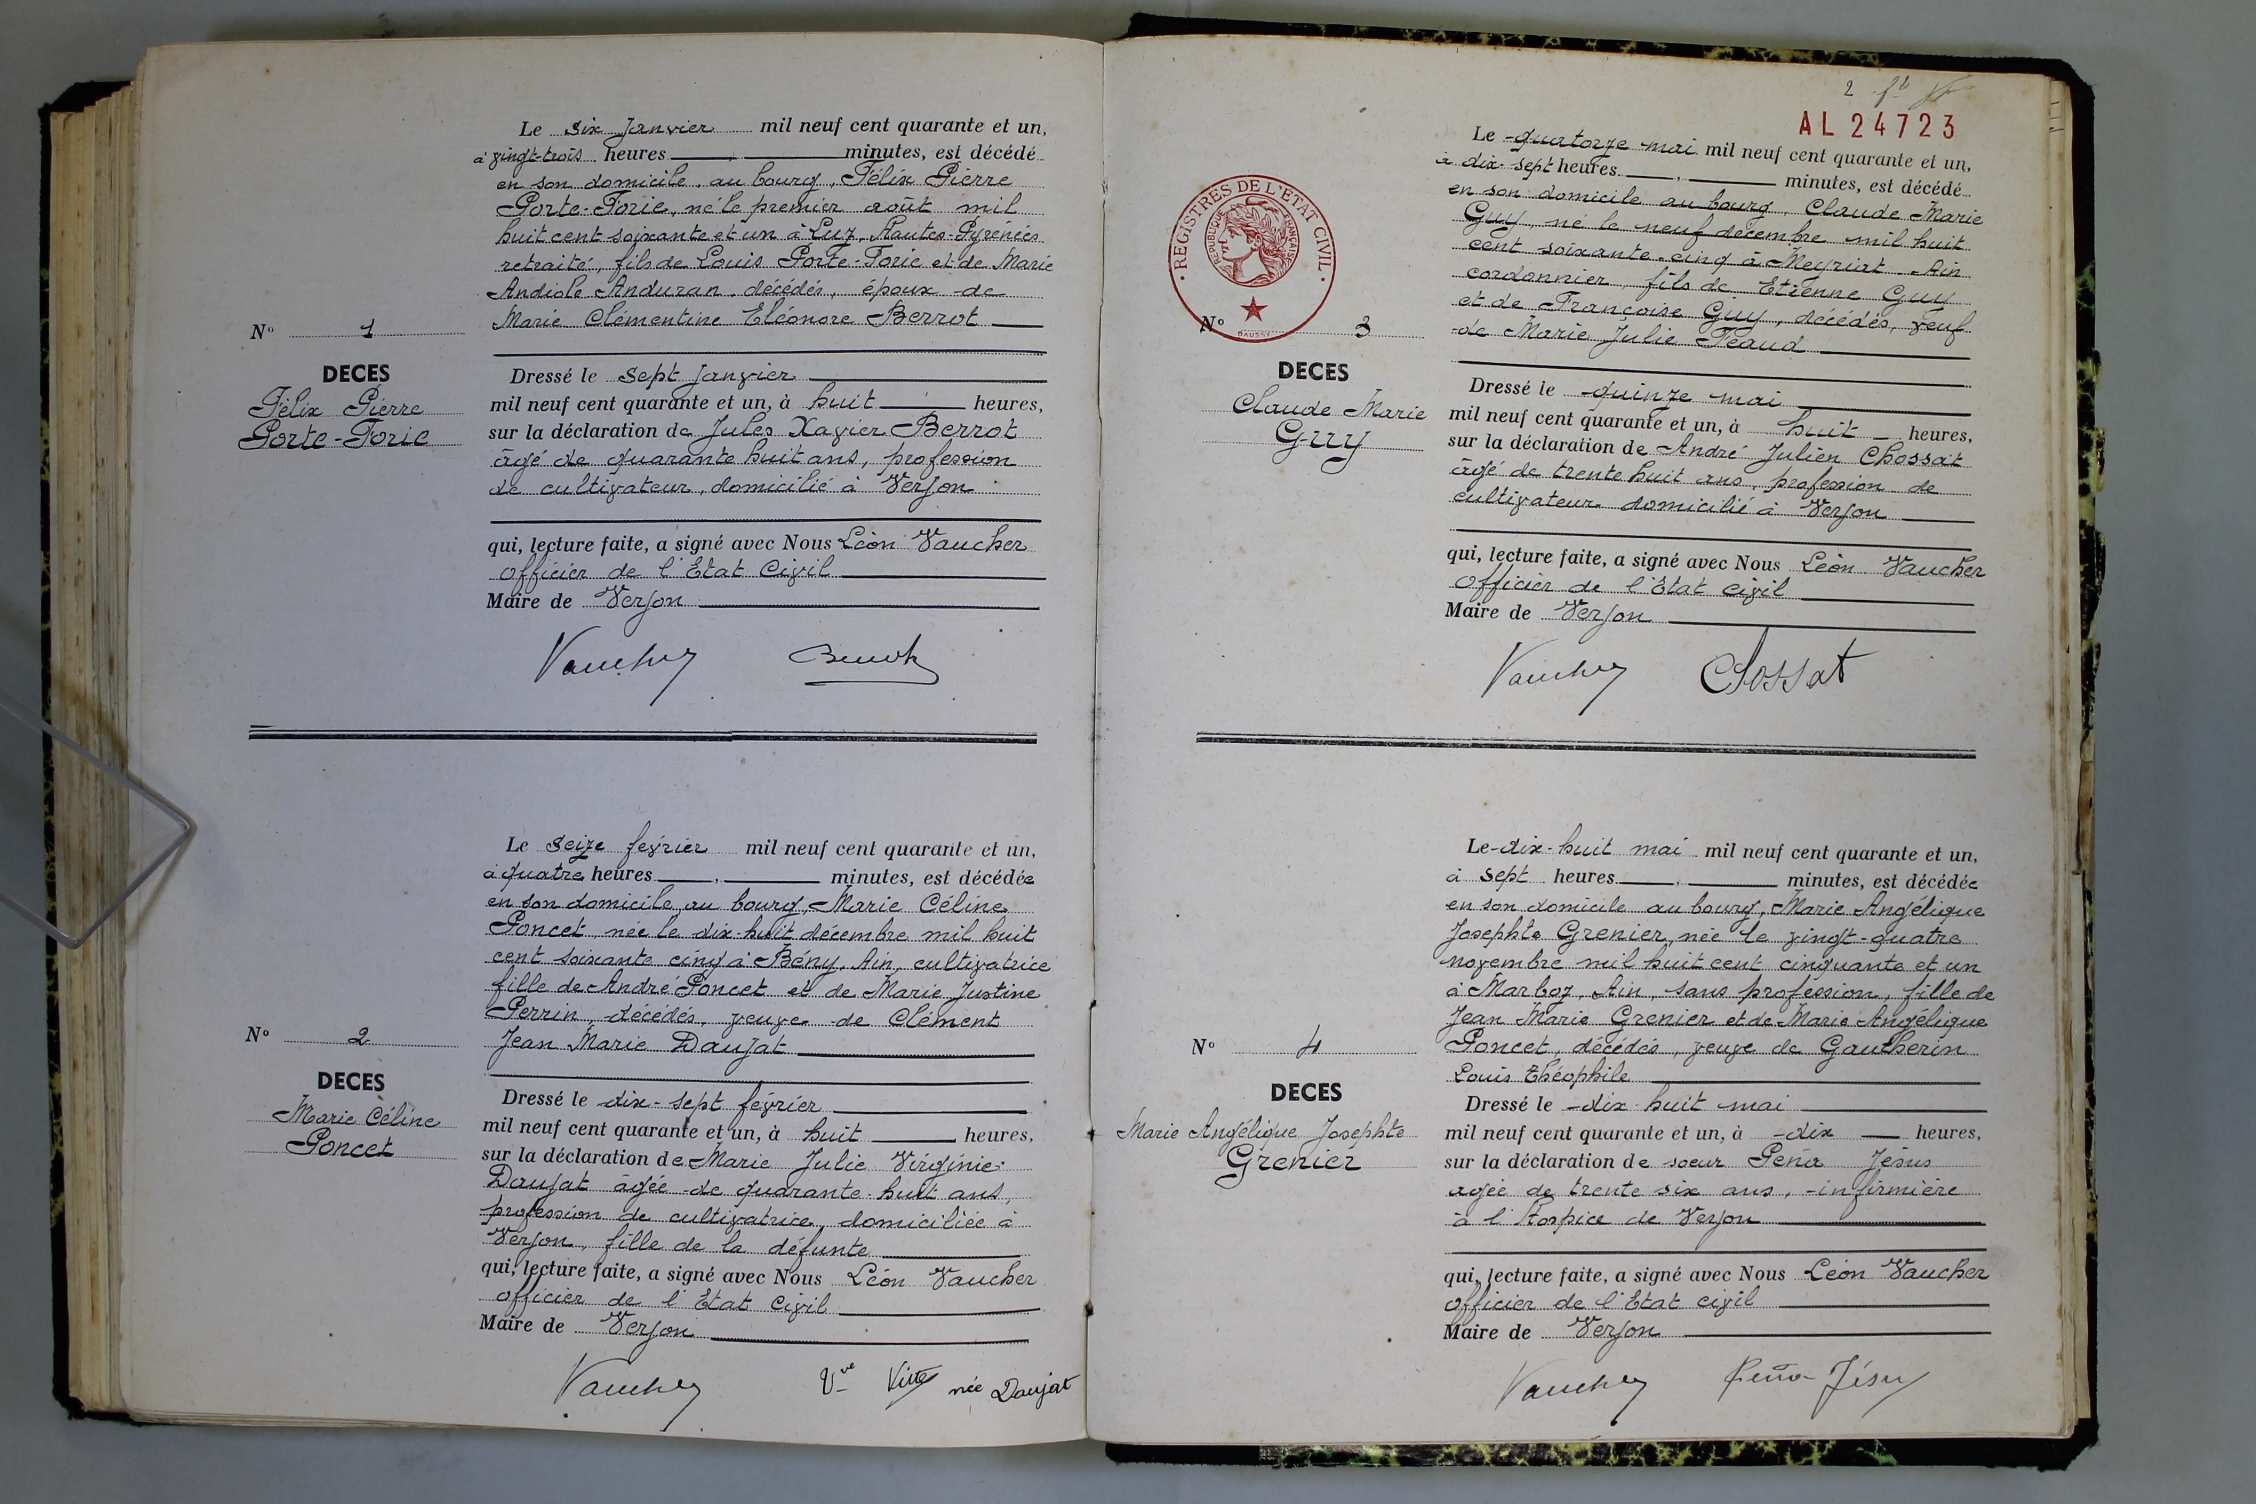 Le six Janvier mil neuf cent quarante et un,
à vingt-trois heures minutes, est décédé
en son domicile, au bourg, Félix Pierre
Porte-Forie, né le premier août mil
huit cent soixante et un à Luz, Hautes-Pyrénées
retraité, fils de Louis Porte-Forie et de Marie
Andiole Anduran, décédés, époux de
Marie Clémentine Eléonore Berrot
N° 1
DECES
Félix Pierre
Porte-Forie
Dressé le sept Janvier
mil neuf cent quarante et un, à huit heures,
sur la déclaration de Jules Xavier Berrot
âgé de quarante huit ans, profession
de cultivateur, domicilié à Verjon
qui, lecture faite, a signé avec Nous Léon Vaucher
Officier de l'Etat Civil
Maire de Verjon
Vaucher Berrot
Le seize février mil neuf cent quarante et un,
à quatre heures minutes, est décédée
en son domicile au bourg, Marie Céline
Poncet, née le dix-huit décembre mil huit
cent soixante cinq à Bény, Ain, cultivatrice
fille de André Poncet et de Marie Justine
Perrin, décédés, veuve de Clément
Jean Marie Daujat
N° 2
DECES
Marie Céline
Poncet
Dressé le dix-sept février
mil neuf cent quarante et un, à huit heures,
sur la déclaration de Marie Julie Virginie
Daujat agée de quarante huit ans,
profession de cultivatrice, domiciliée à
Verjon, fille de la défunte
qui, lecture faite, a signé avec Nous Léon Vaucher
officier de l'Etat Civil
Maire de Verjon
Vaucher Vve Vitte née Daujat
2
AL 24723
REGISTRES DE L'ETAT CIVIL
REPUBLIQUE FRANÇAISE
DAUSSY
Le quatorze mai mil neuf cent quarante et un,
à dix-sept heures minutes, est décédé
en son domicile au bourg, Claude Marie
Guy, né le neuf décembre mil huit
cent soixante-cinq à Meyriat Ain
cordonnier, fils de Etienne Guy
et de Françoise Guy, décédés, veuf
de Marie Julie Féaud
N° 3
DECES
Claude Marie
Guy
Dressé le quinze mai
mil neuf cent quarante et un, à huit heures,
sur la déclaration de André Julien Chossat
âgé de trente huit ans, profession de
cultivateur domicilié à Verjon
qui, lecture faite, a signé avec Nous Léon Vaucher
Officier de l'Etat Civil
Maire de Verjon
Vaucher Chossat
Le dix-huit mai mil neuf cent quarante et un,
à sept heures minutes, est décédée
en son domicile au bourg, Marie Angélique
Josephte Grenier, née le vingt-quatre
novembre mil huit cent cinquante et un
à Marboz, Ain, sans profession, fille de
Jean Marie Grenier et de Marie Angélique
Poncet, décédés, veuve de Gautherin
Louis Théophile
N° 4
DECES
Marie Angélique Josephte
Grenier
Dressé le dix huit mai
mil neuf cent quarante et un, à dix heures,
sur la déclaration de soeur Peña Jésus
agée de trente six ans, infirmière
à l'Hospice de Verjon
qui, lecture faite, a signé avec Nous Léon Vaucher
Officier de l'Etat civil
Maire de Verjon
Vaucher Peña Jésus